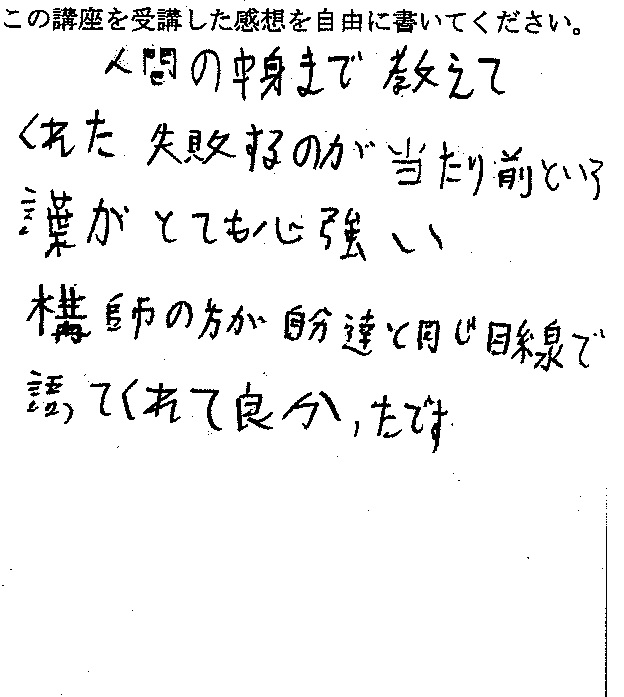 この講座を受講した感想を自由に書いてください。
人間の中身まで教えて
くれた 失敗するのが当たり前という
言葉がとても心強い
構師の方が自分達と同じ目線で
語ってくれて良かったです